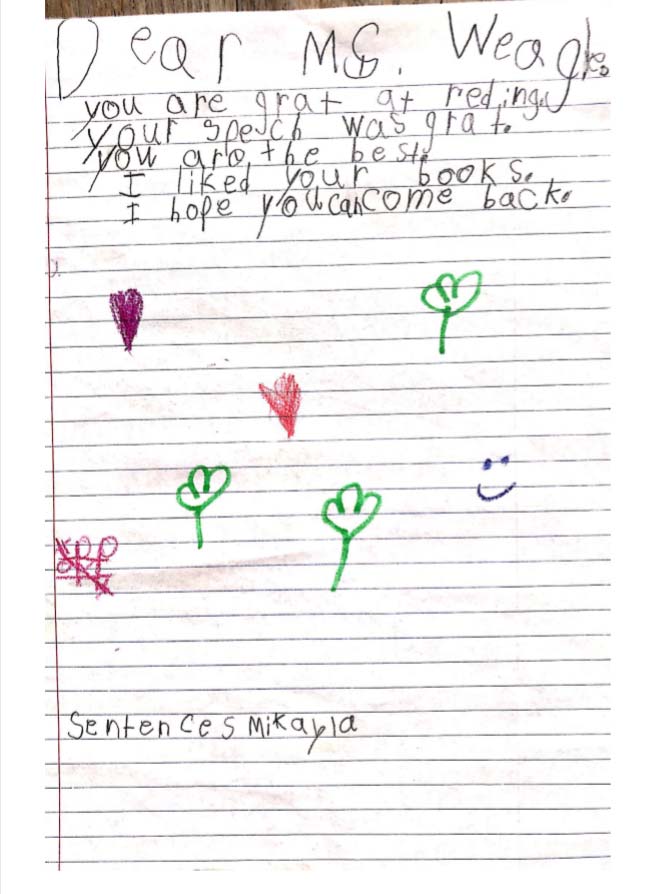 Dear Ms. Weagle.
you are grat at reding.
Your spech was grat.
you are the best.
I liked your books.
I hope you can come back.
Sentences Mikayla